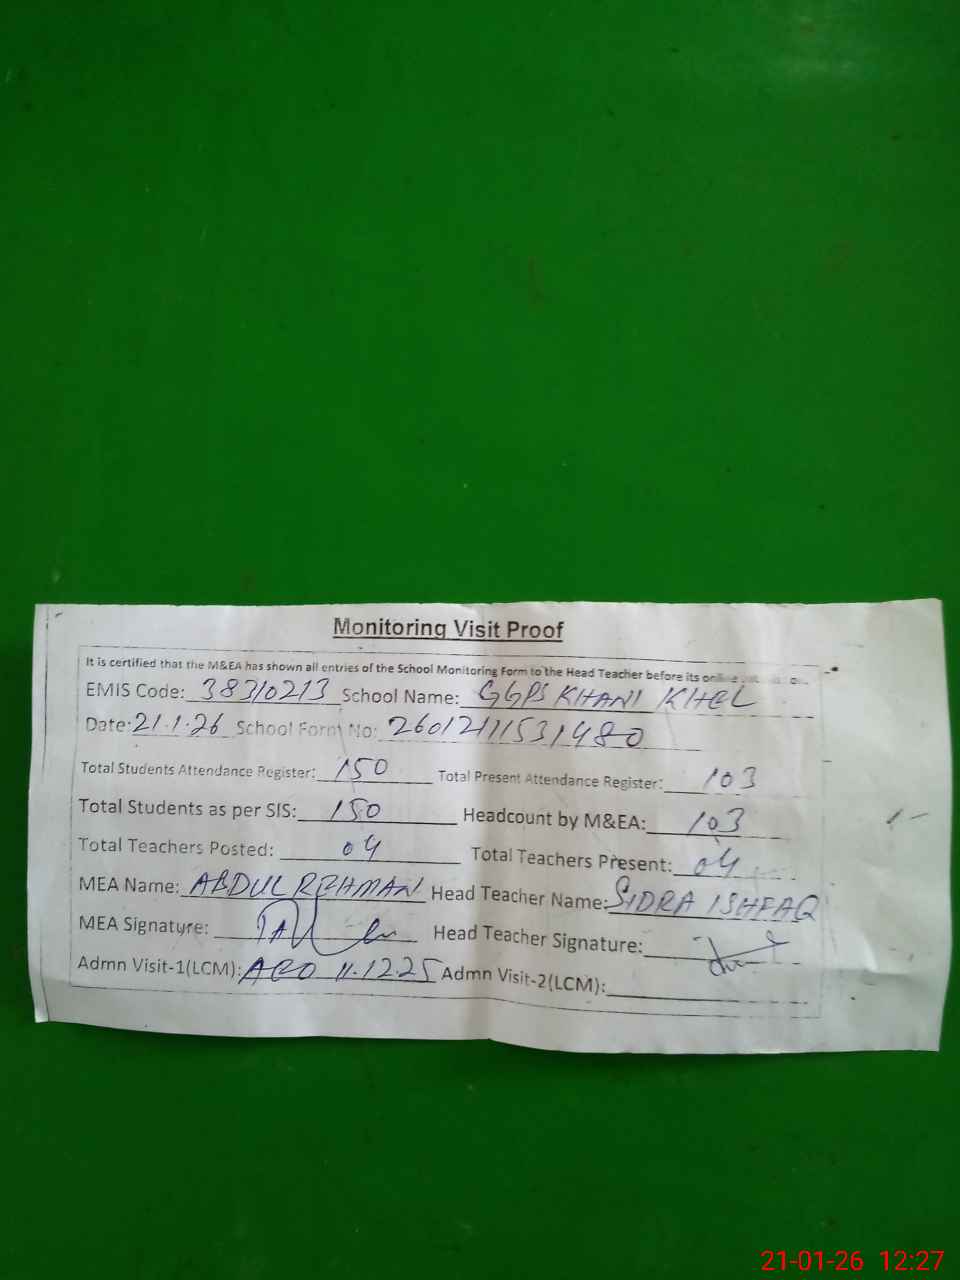 Monitoring Visit Proof
It is certified that the M&EA has shown all entries of the School Monitoring Form to the Head Teacher before its online
EMIS Code: 38310213 School Name: GGPS KHANI KHEL
Date: 21.1.26 School Form No: 26012111531480
Total Students Attendance Register: 150 Total Present Attendance Register: 103
Total Students as per SIS: 150 Headcount by M&EA: 103
Total Teachers Posted: 04 Total Teachers Present: 04
MEA Name: ABDUL REHMAN Head Teacher Name: SIDRA ISHFAQ
MEA Signature: Head Teacher Signature:
Admn Visit-1(LCM): AEO 11.12.25 Admn Visit-2(LCM):
21-01-26 12:27